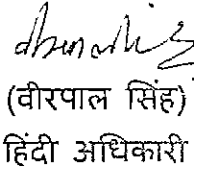 (वीरपाल सिंह)
हिंदी अधिकारी